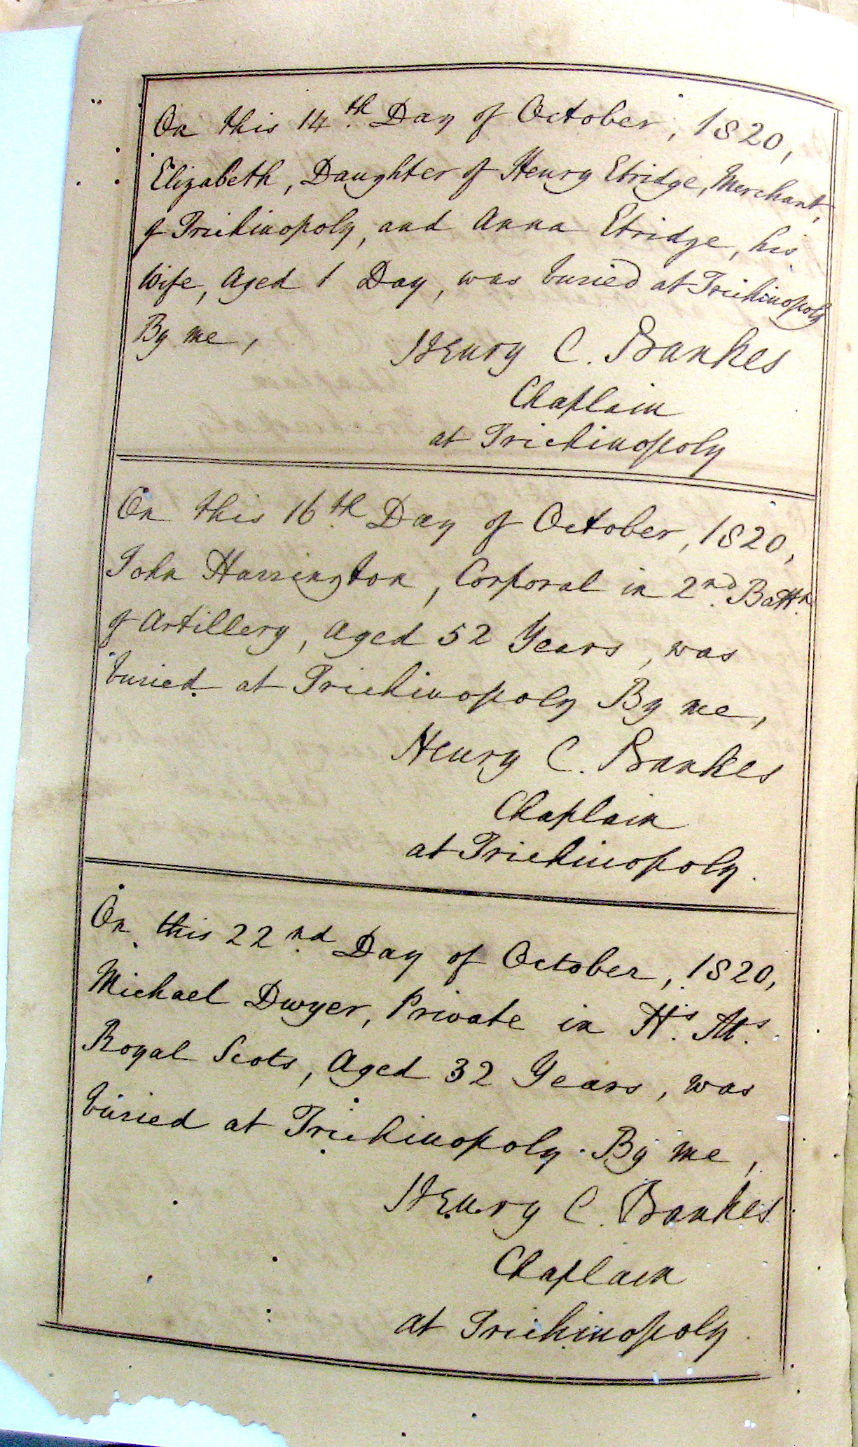 On this 14th Day of October, 1820,
Elizabeth, Daughter of Henry Etridge, Merchant,
of Trichinopoly, and Anna Etridge, his
Wife, Aged 1 Day, was buried at Trichinopoly
By me,
Henry C. Bankes
Chaplain
at Trichinopoly
On this 16th Day of October, 1820,
John Harrington, Corporal in 2nd. Battn.
of Artillery, Aged 52 Years, was
buried at Trichinopoly By me,
Henry C. Bankes
Chaplain
at Trichinopoly.
On this 22nd Day of October, 1820,
Michael Dwyer, Private in H's. M's.
Royal Scots, Aged 32 Years, was
buried at Trichinopoly. By me,
Henry C. Bankes
Chaplain
at Trichinopoly.